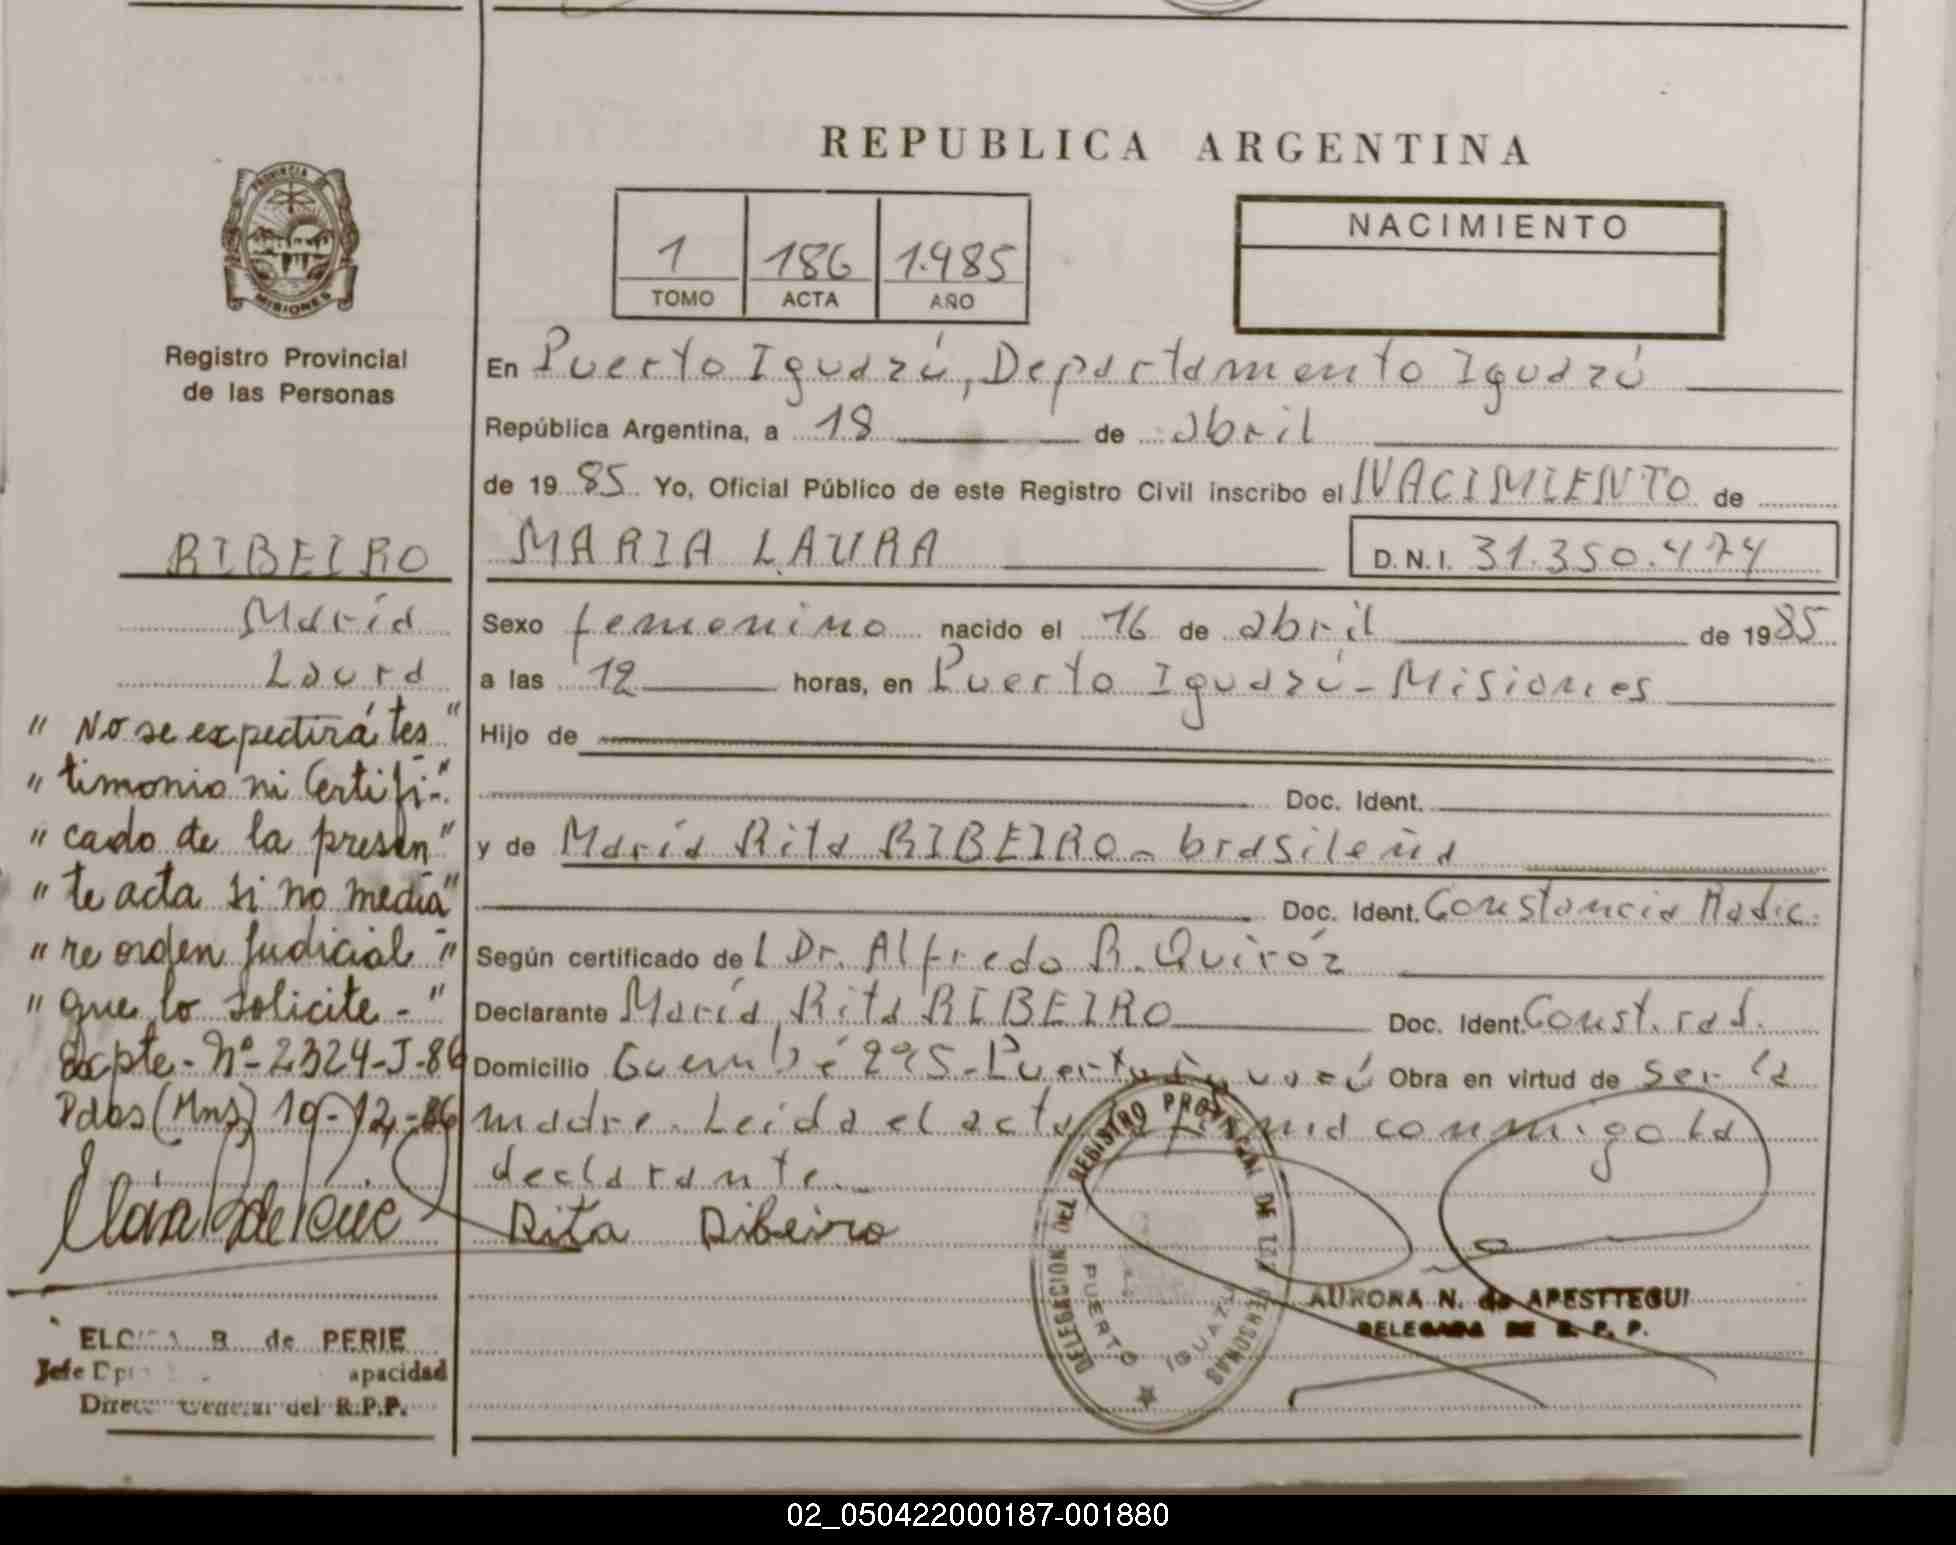 REPUBLICA ARGENTINA
PROVINCIA DE
MISIONES
Registro Provincial
de las Personas
1 186 1.985
TOMO ACTA AÑO
NACIMIENTO
En Puerto Iguazú, Departamento Iguazú
República Argentina, a 18 de abril
de 1985 Yo, Oficial Público de este Registro Civil inscribo el NACIMIENTO de
RIBEIRO
María
Laura
MARIA LAURA D.N.I. 31.350.474
Sexo femenino nacido el 16 de abril de 1985
a las 12 horas, en Puerto Iguazú - Misiones
Hijo de
Doc. Ident.
y de María Rita RIBEIRO - brasileña
Doc. Ident. Constancia Radic.
Según certificado del Dr. Alfredo R. Quiróz
Declarante María Rita RIBEIRO Doc. Ident. Const. rad.
Domicilio Guembé 295 - Puerto Iguazú Obra en virtud de ser la
madre. Leída el acta la firma conmigo la
declarante.
Rita Ribeiro
"No se expedirá tes"
"timonio ni Certifi-"
"cado de la presen"
"te acta si no media"
"re orden judicial -"
"que lo solicite -"
Expte - Nº - 2324 - J - 86
Pdas (Mns) 19-12-86
ELOISA B. de PERIE
Jefe Dpt apacidad
Direcc General del R.P.P.
DELEGACION DEL REGISTRO PROVINCIAL DE LAS PERSONAS
PUERTO IGUAZU
AURORA N. de APESTTEGUI
DELEGADA DE R. P. P.
02_050422000187-001880